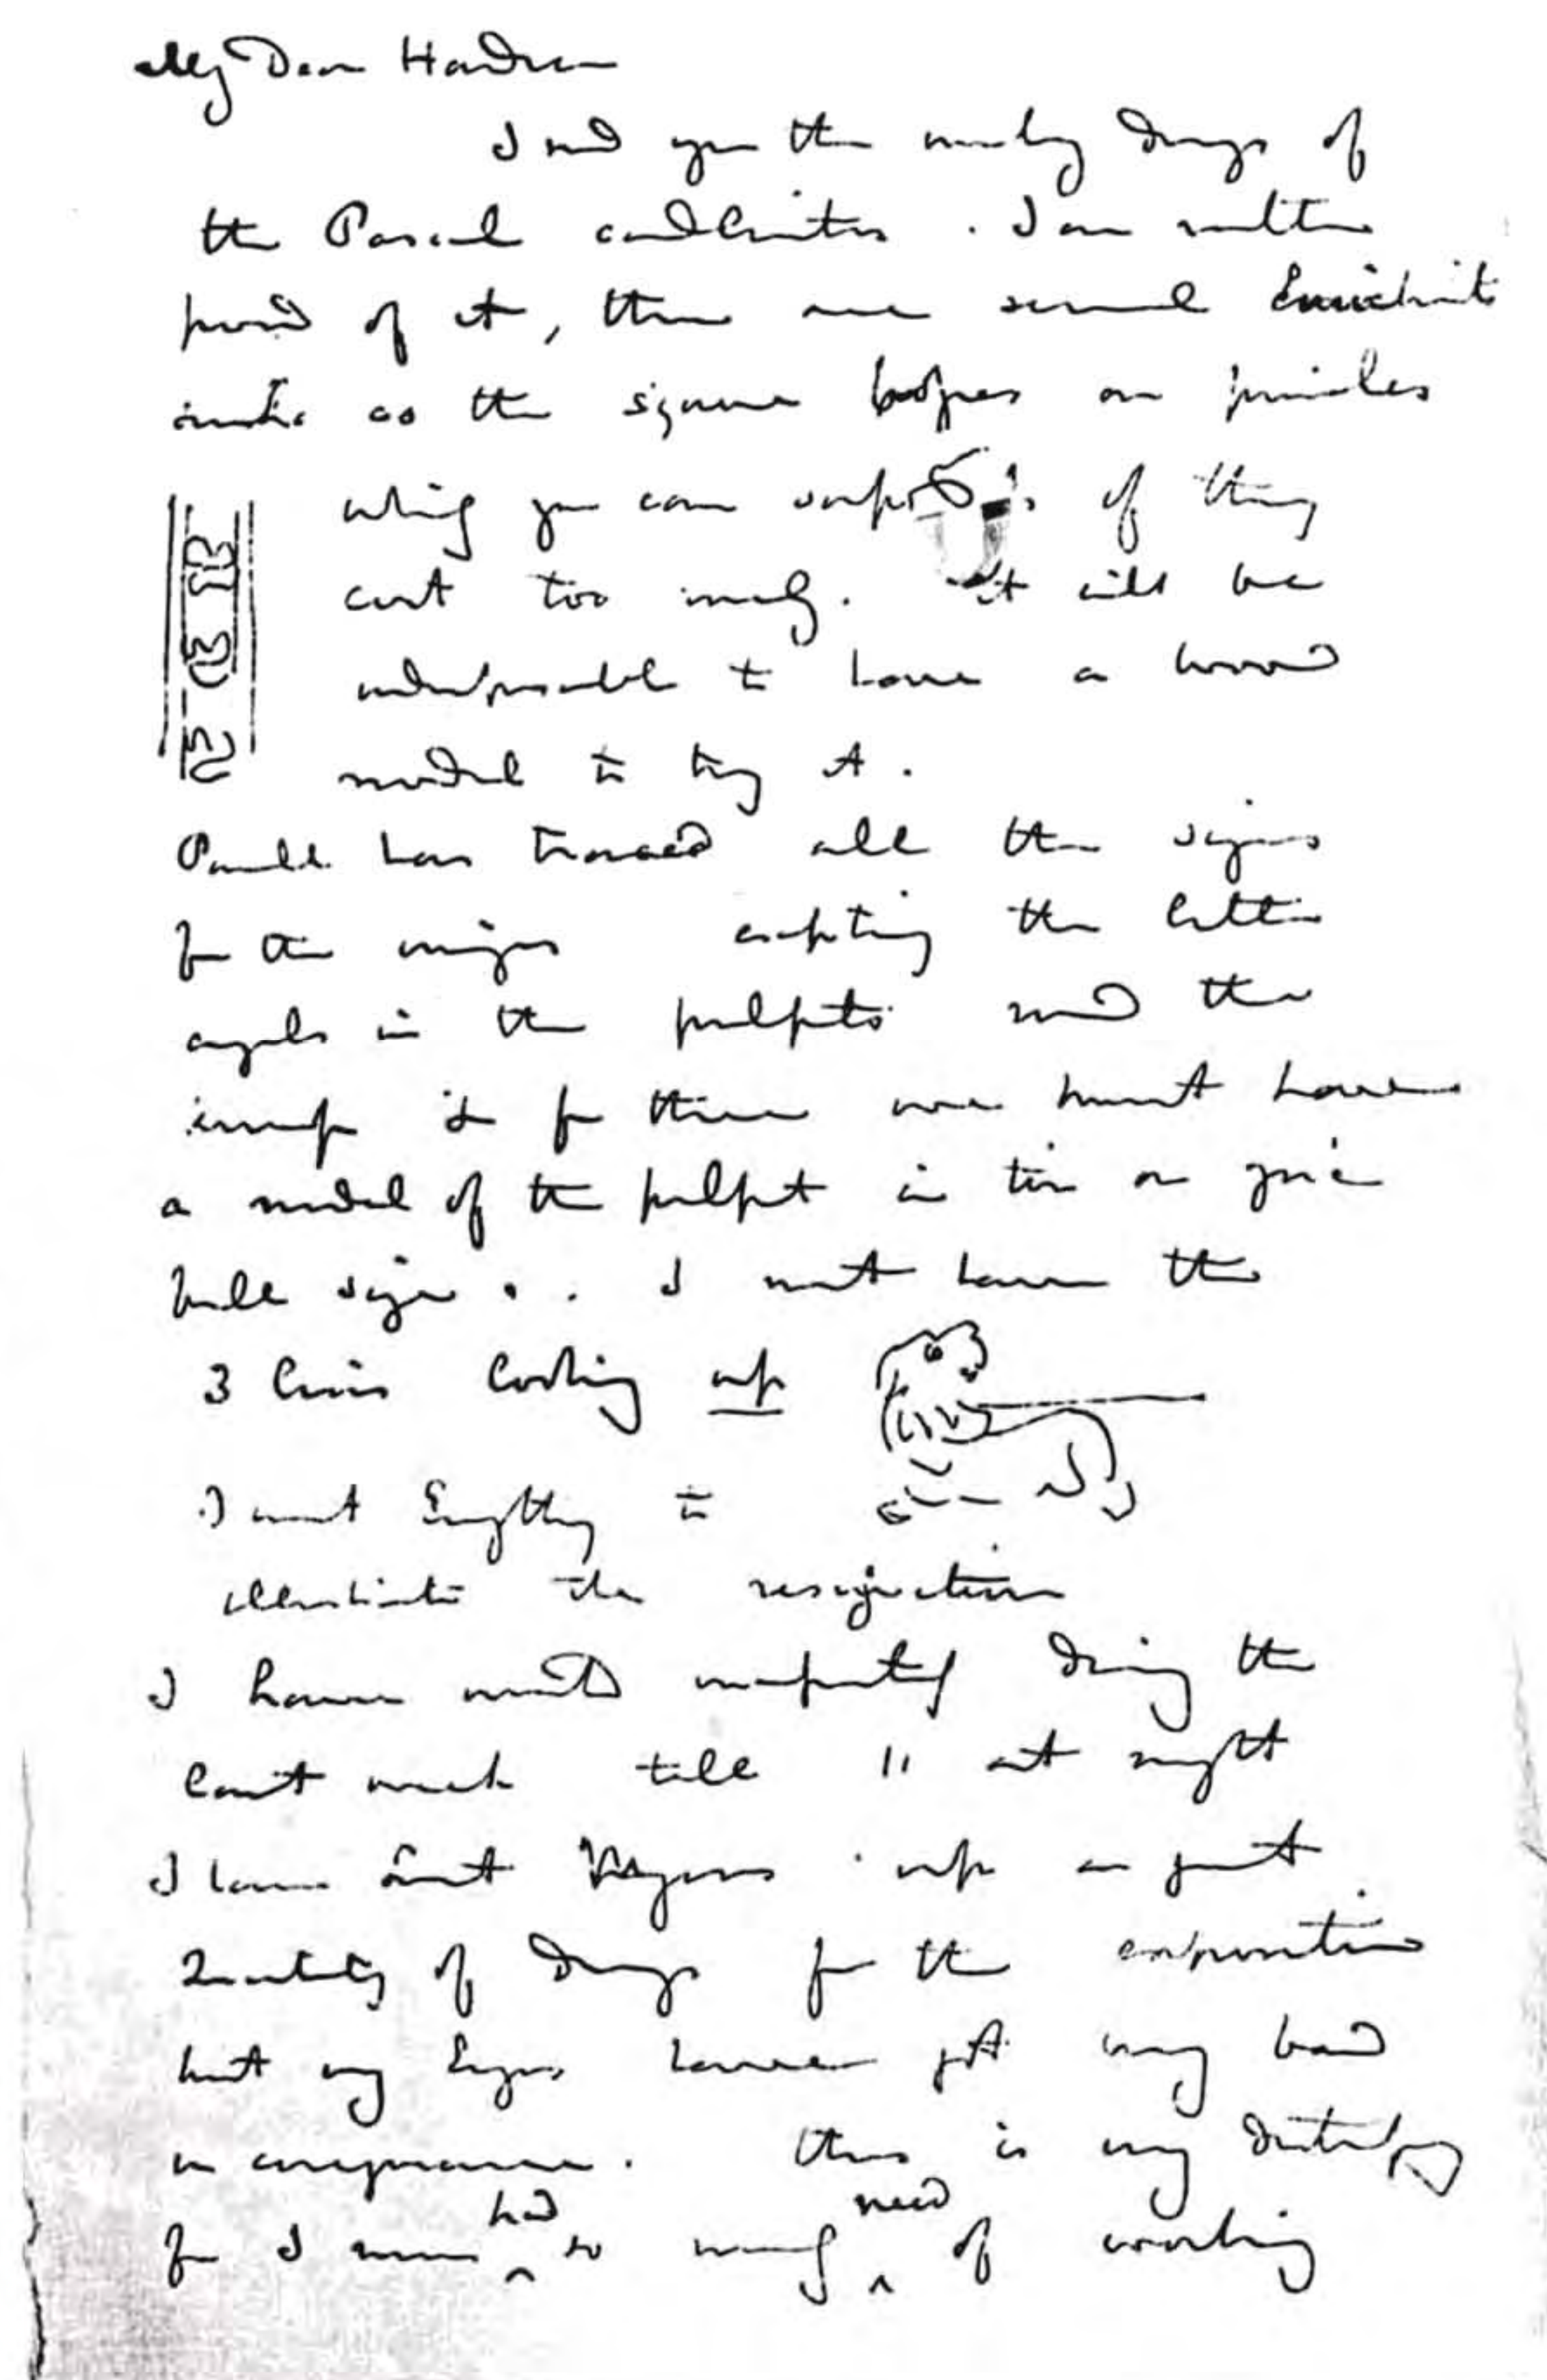 My Dear Hardman
I send you the working drawings of
the Pascal candlestick . I am rather
proud of it, there are several Enrichments
such as the square on pinnacles
which you can of they
cost too much. It will be
indispensable to have a wood
model to try it .
Powell has traced all the sizes
for the excepting the little
angels in the pulpits and the
is for these we must have
a model of the pulpit in tin or zinc
full size . . I must have the
3 lions looking up
I want Everything to
illustrate the resurrection
I have worked during the
last week till 11 at night
I have sent Myers up a great
Quantity of drawings for the exposition
but my Eyes have got very bad
in consequence . this is very distressing
for I never had so much need of working